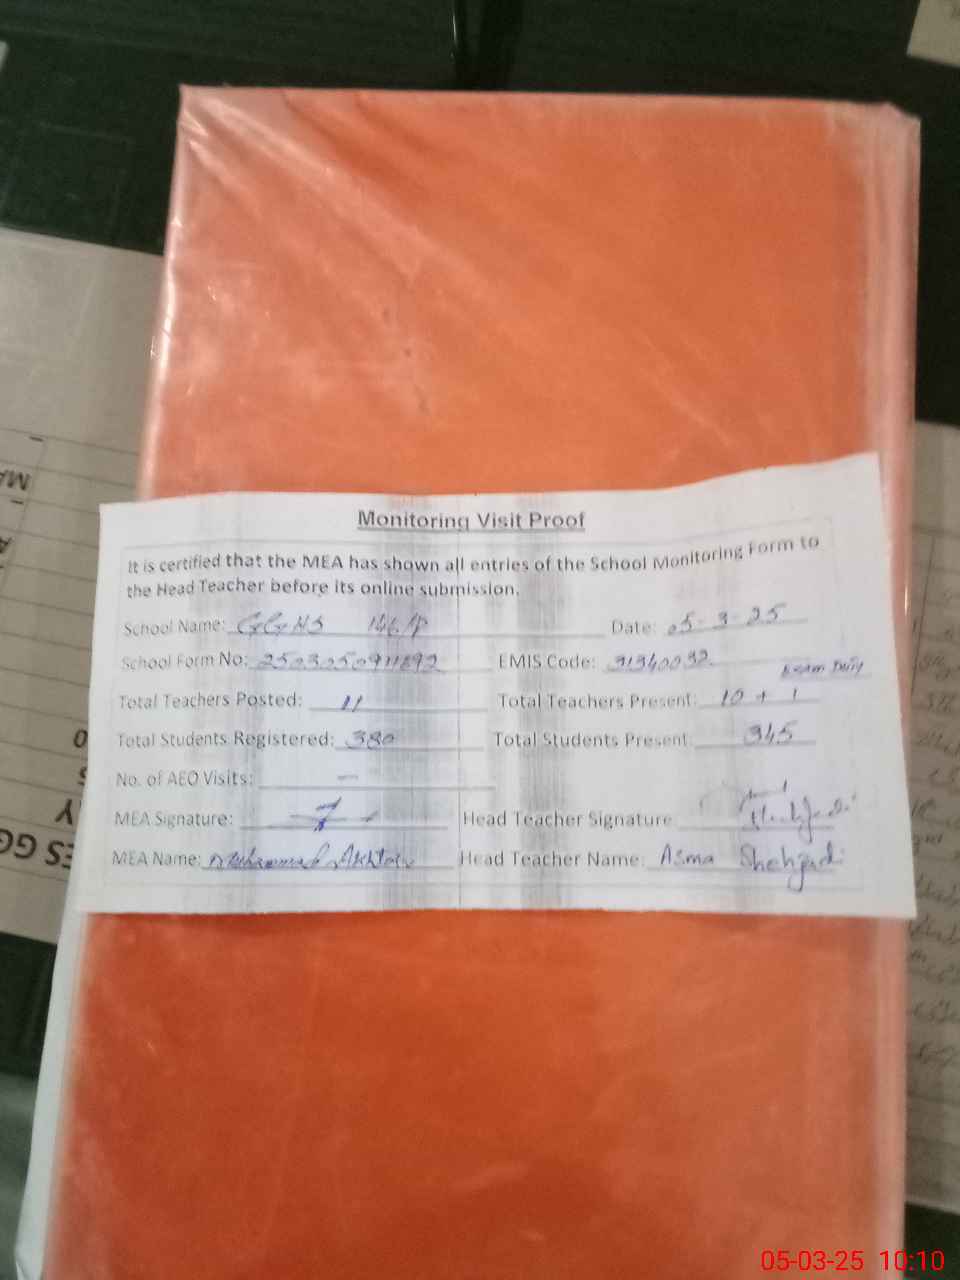 Monitoring Visit Proof
It is certified that the MEA has shown all entries of the School Monitoring Form to
the Head Teacher before its online submission.
School Name: GGHS 146/P Date: 05-3-25
School Form No: EMIS Code: 31340032
Exam Duty
Total Teachers Posted: 11 Total Teachers Present: 10 + 1
Total Students Registered: 380 Total Students Present: 345
No. of AEO Visits: —
MEA Signature: Head Teacher Signature
MEA Name: Muhammad Akhtar Head Teacher Name: Asma Shehzadi
05-03-25 10:10